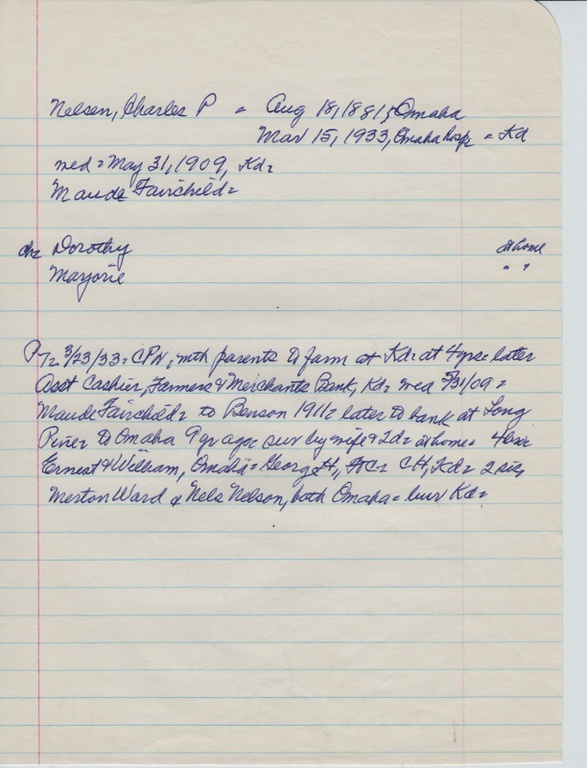 Nelsen, Charles P = Aug 18, 1881, Omaha
Mar 15, 1933, Omaha hosp = Kd
med = May 31, 1909, Kd=
Maude Fairchild=
ch= Dorothy at home
Marjorie " "
PT= 3/23/33 = CPN, with parents to farm at Kd= at 4yrs= later
Asst Cashier, Farmers & Merchants Bank, Kd= med 5/31/09 =
Maude Fairchild= to Benson 1911= later to bank at Long
Pine= to Omaha 9 yr ago= sur by wife & 2d= at home= 4bro=
Ernest & William, Omaha= George H, CH, Kd= 2 sis,
Merton Ward & Nels Nelson, both Omaha= bur Kd=